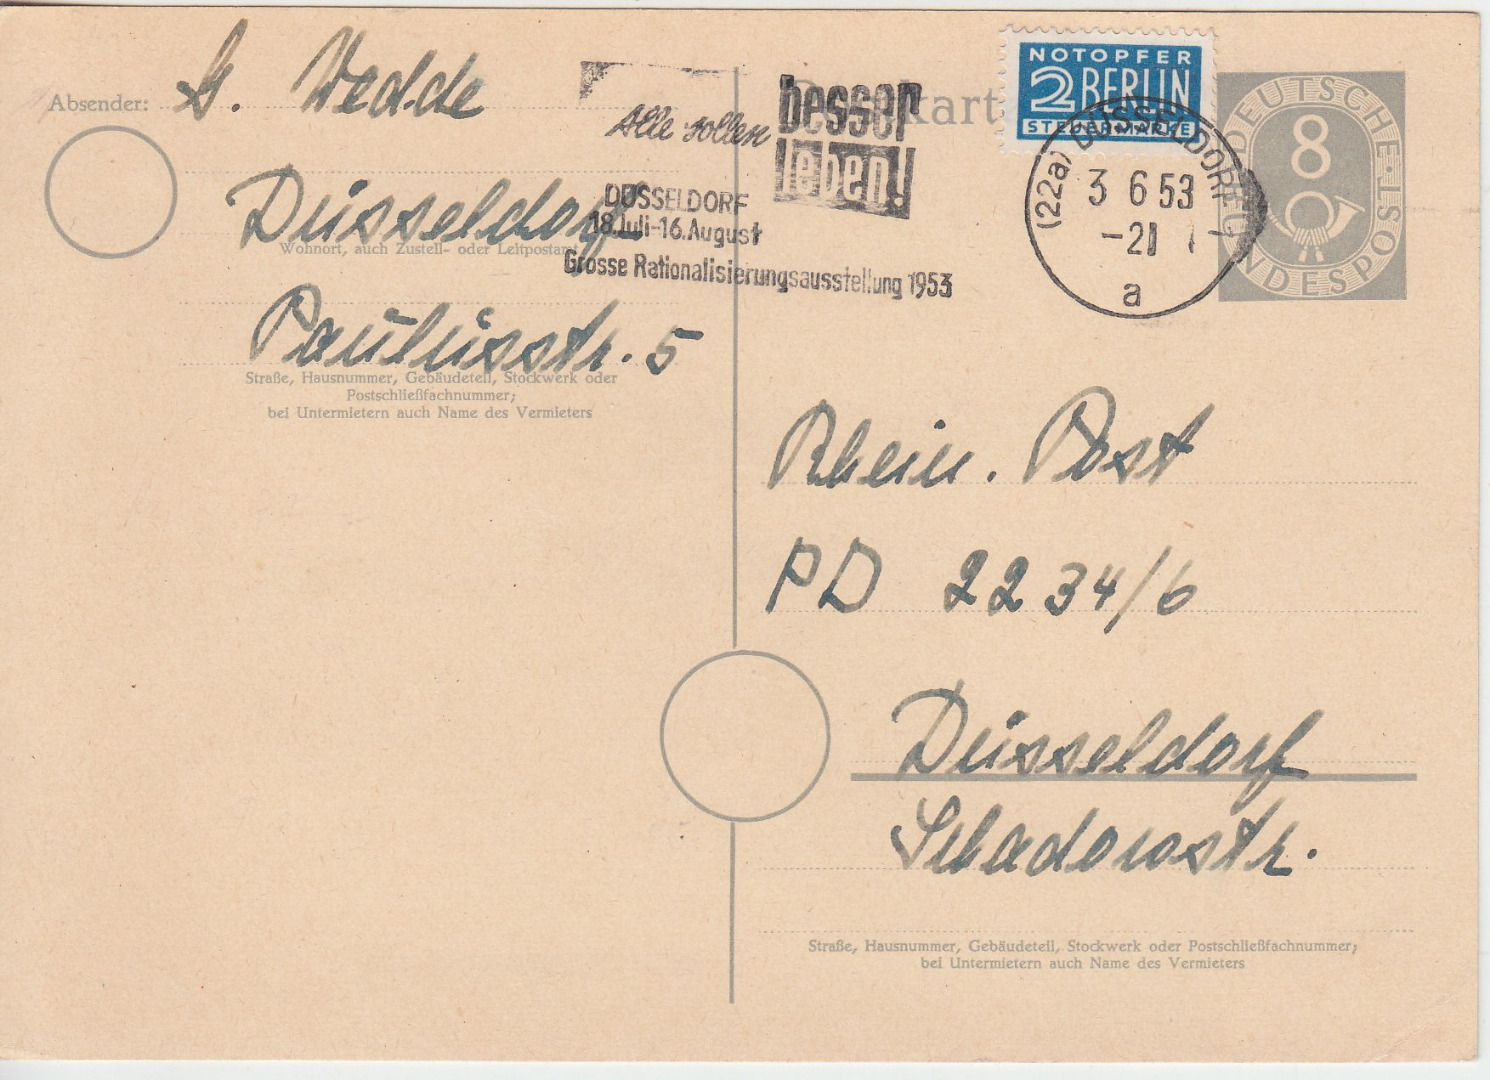 Absender: G. Wedde
Düsseldorf
Wohnort, auch Zustell- oder Leitpostamt
Paulusstr. 5
Straße, Hausnummer, Gebäudeteil, Stockwerk oder
Postschließfachnummer;
bei Untermietern auch Name des Vermieters
Alle sollen
besser
leben!
DÜSSELDORF
18.Juli-16.August
Grosse Rationalisierungsausstellung 1953
NOTOPFER
2 BERLIN
STEUERMARKE
(22a) DÜSSELDORF
3 6 53
a
DEUTSCHE
8
BUNDESPOST
Rhein. Post
PD 2234/6
Düsseldorf
Schadowstr.
Straße, Hausnummer, Gebäudeteil, Stockwerk oder Postschließfachnummer;
bei Untermietern auch Name des Vermieters